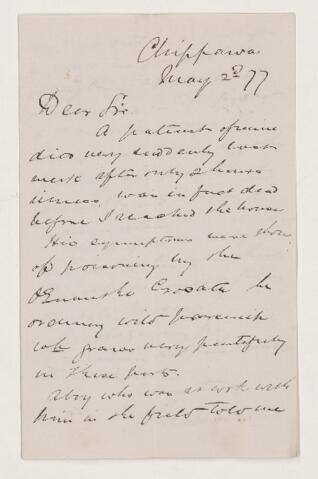 Chippawa
May 2nd 77
Dear Sir
A patient of mine
died very suddenly last
week after only 2 hours
illness, was in fact dead
before I reached the house
His symptoms were those
of poisoning by the
Œnanthe Crocata the
ordinary wild parsnip
wh grows very plentifully
in these parts.
A boy who was at work with
him in the field told me